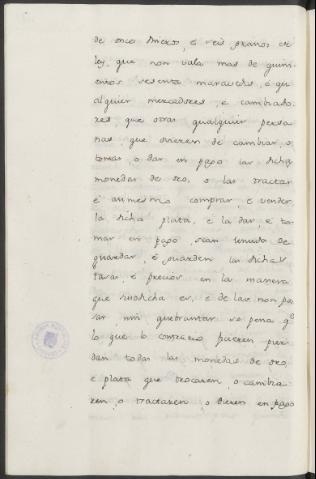 de once dineros, e seis granos de
ley, que non vala mas de quini
entos sesenta maravedis, o qua
alquier mercadores, e cambiado
res, que otras qualquier perso
nas, que ovieren de cambiar, o
tomar, o dar en pago las dichas
monedas de oro, o las tractar
é asimesmo comprar, e vender
la dicha plata, e la dar, e to
mar en pago, sean tenudos de
guardar, é guarden las dichas
tasas, e precios en la manera
que susodicha es, e de las non pa
sar, nin quebrantar so pena qe
lo que lo contrario fizieren pier
dan todas las monedas de oro,
e plata que trocaren, o cambia
ren, o tractaren, o dieren en pago